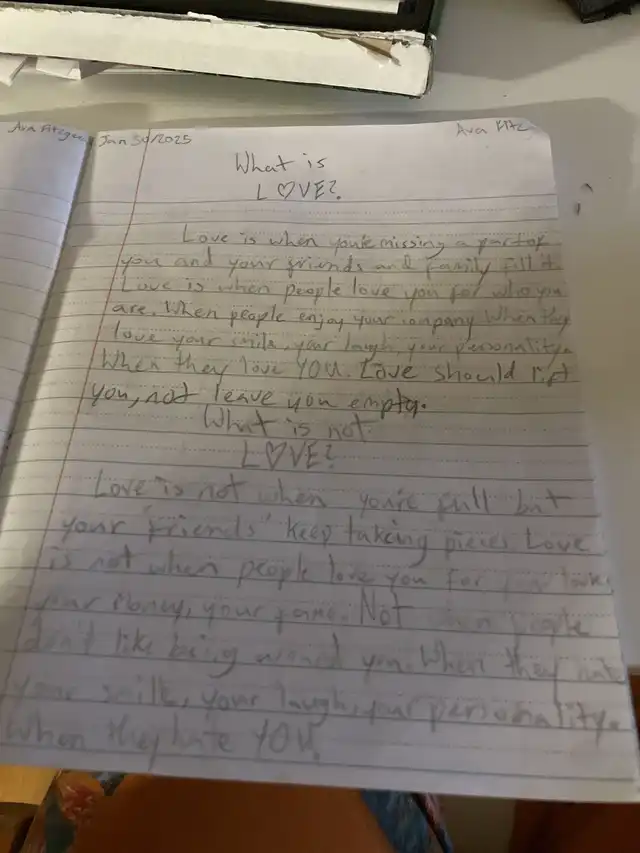 Ava Fitzger Jan 30/2025 Ava Fitz
What is
L♡VE?
Love is when you're missing a part of
you and your friends and family fill it.
Love is when people love you for who you
are. When people enjoy your company When they
love your smile, your laugh, your personality.
When they love YOU. Love should lift
you, not leave you empty.
What is not
L♡VE?
Love is not when you're full but
your 'friends' keep taking pieces. Love
is not when people love you for your looks,
your money, your fame. Not when people
don't like being around you. When they hate
your smile, your laugh, your personality.
When they hate YOU.